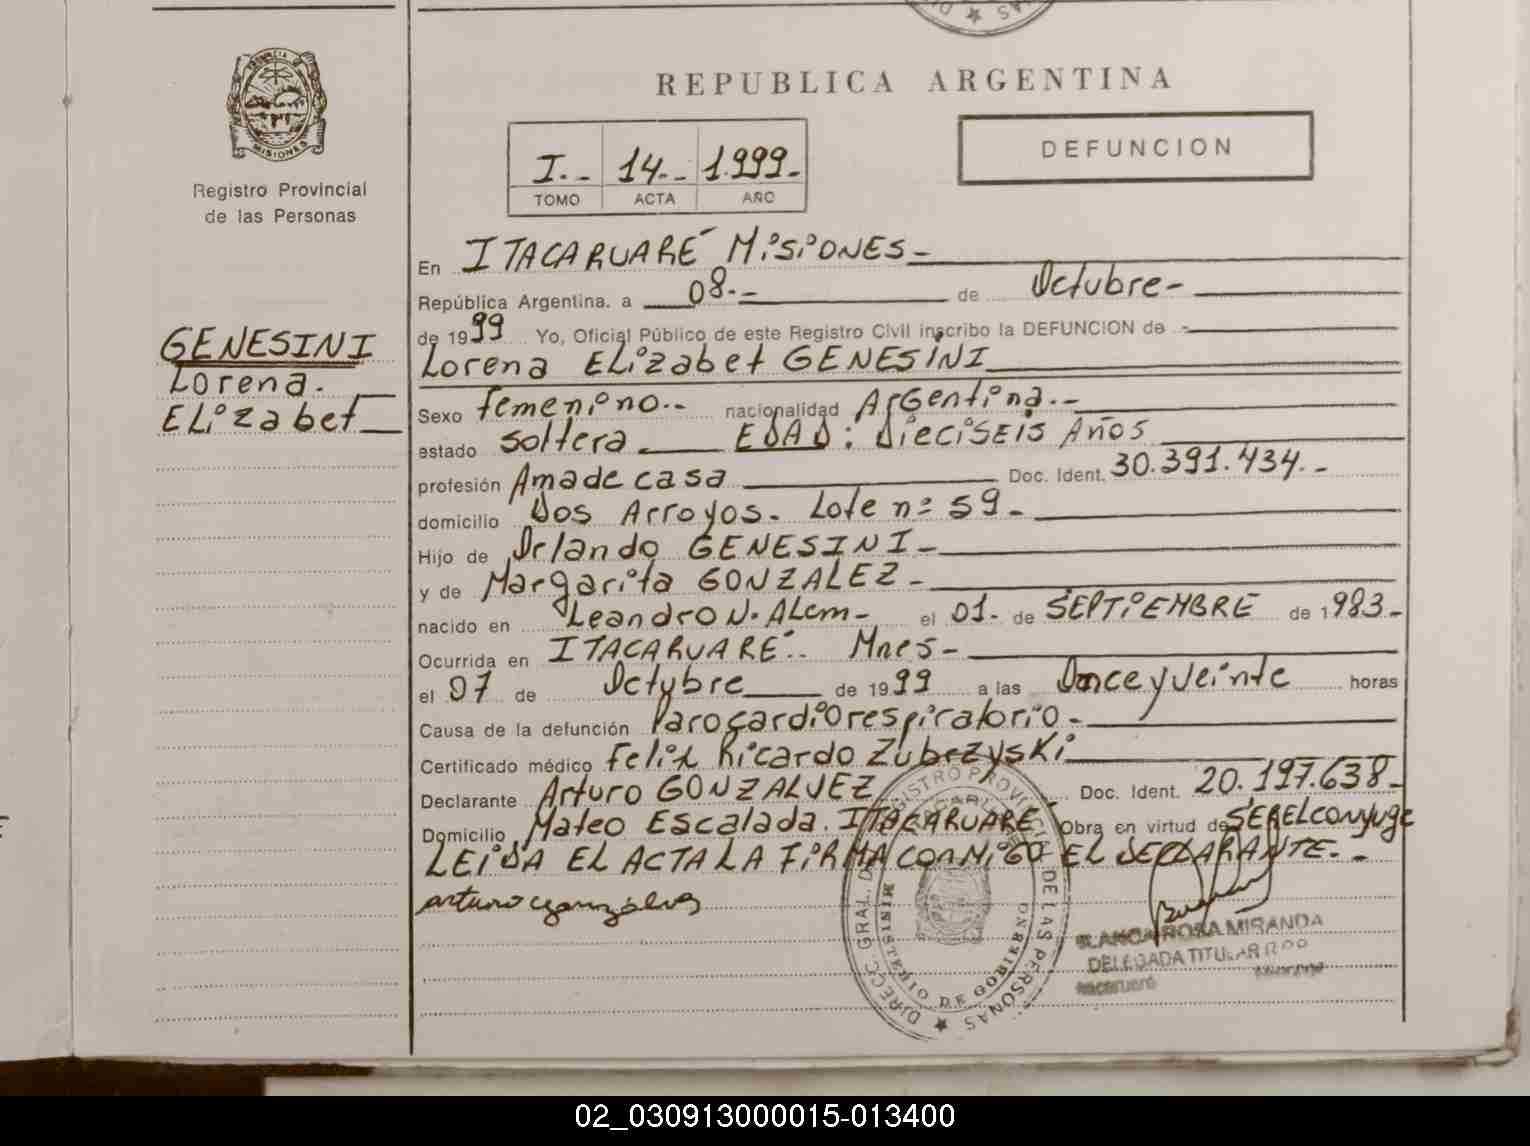 REPUBLICA ARGENTINA
PROVINCIA DE
MISIONES
Registro Provincial
de las Personas
I.- 14.- 1.999.-
TOMO ACTA AÑO
DEFUNCION
GENESINI
Lorena.
ELizabet
En ITACARUARÉ MisiONES-
República Argentina. a 08.- de Octubre-
de 1999 Yo, Oficial Público de este Registro Civil inscribo la DEFUNCION de
Lorena ELizabet GENESINI
Sexo femenino.- nacionalidad ArGentina.-
estado soltera EDAD: DieciSEIS Años
profesión Ama de casa Doc. Ident. 30.391.434.-
domicilio Dos Arroyos. Lote nº 59-
Hijo de Orlando GENESINI-
y de Margarita GONZALEZ-
nacido en Leandro N. ALem- el 01. de SEPTIEMBRE de 1983-
Ocurrida en ITACARUARÉ.. Mnes-
el 07 de Octubre de 1999 a las Once y veinte horas
Causa de la defunción Parocardiorespiratorio-
Certificado médico Felix Ricardo ZubrzysKi
Declarante Arturo GONZALVEZ Doc. Ident. 20.197.638-
Domicilio Mateo Escalada. ITACARUARÉ Obra en virtud de SER EL conyuge
LEIDA EL ACTA LA FIRMA CONMIGO EL DECLARANTE.-
arturo gonzalves
DIRECC. GRAL. DEL REGISTRO PROVINCIAL DE LAS PERSONAS
MINISTERIO DE GOBIERNO
BLANCA ROSA MIRANDA
DELEGADA TITULAR
Itacaruaré Misiones
02_030913000015-013400